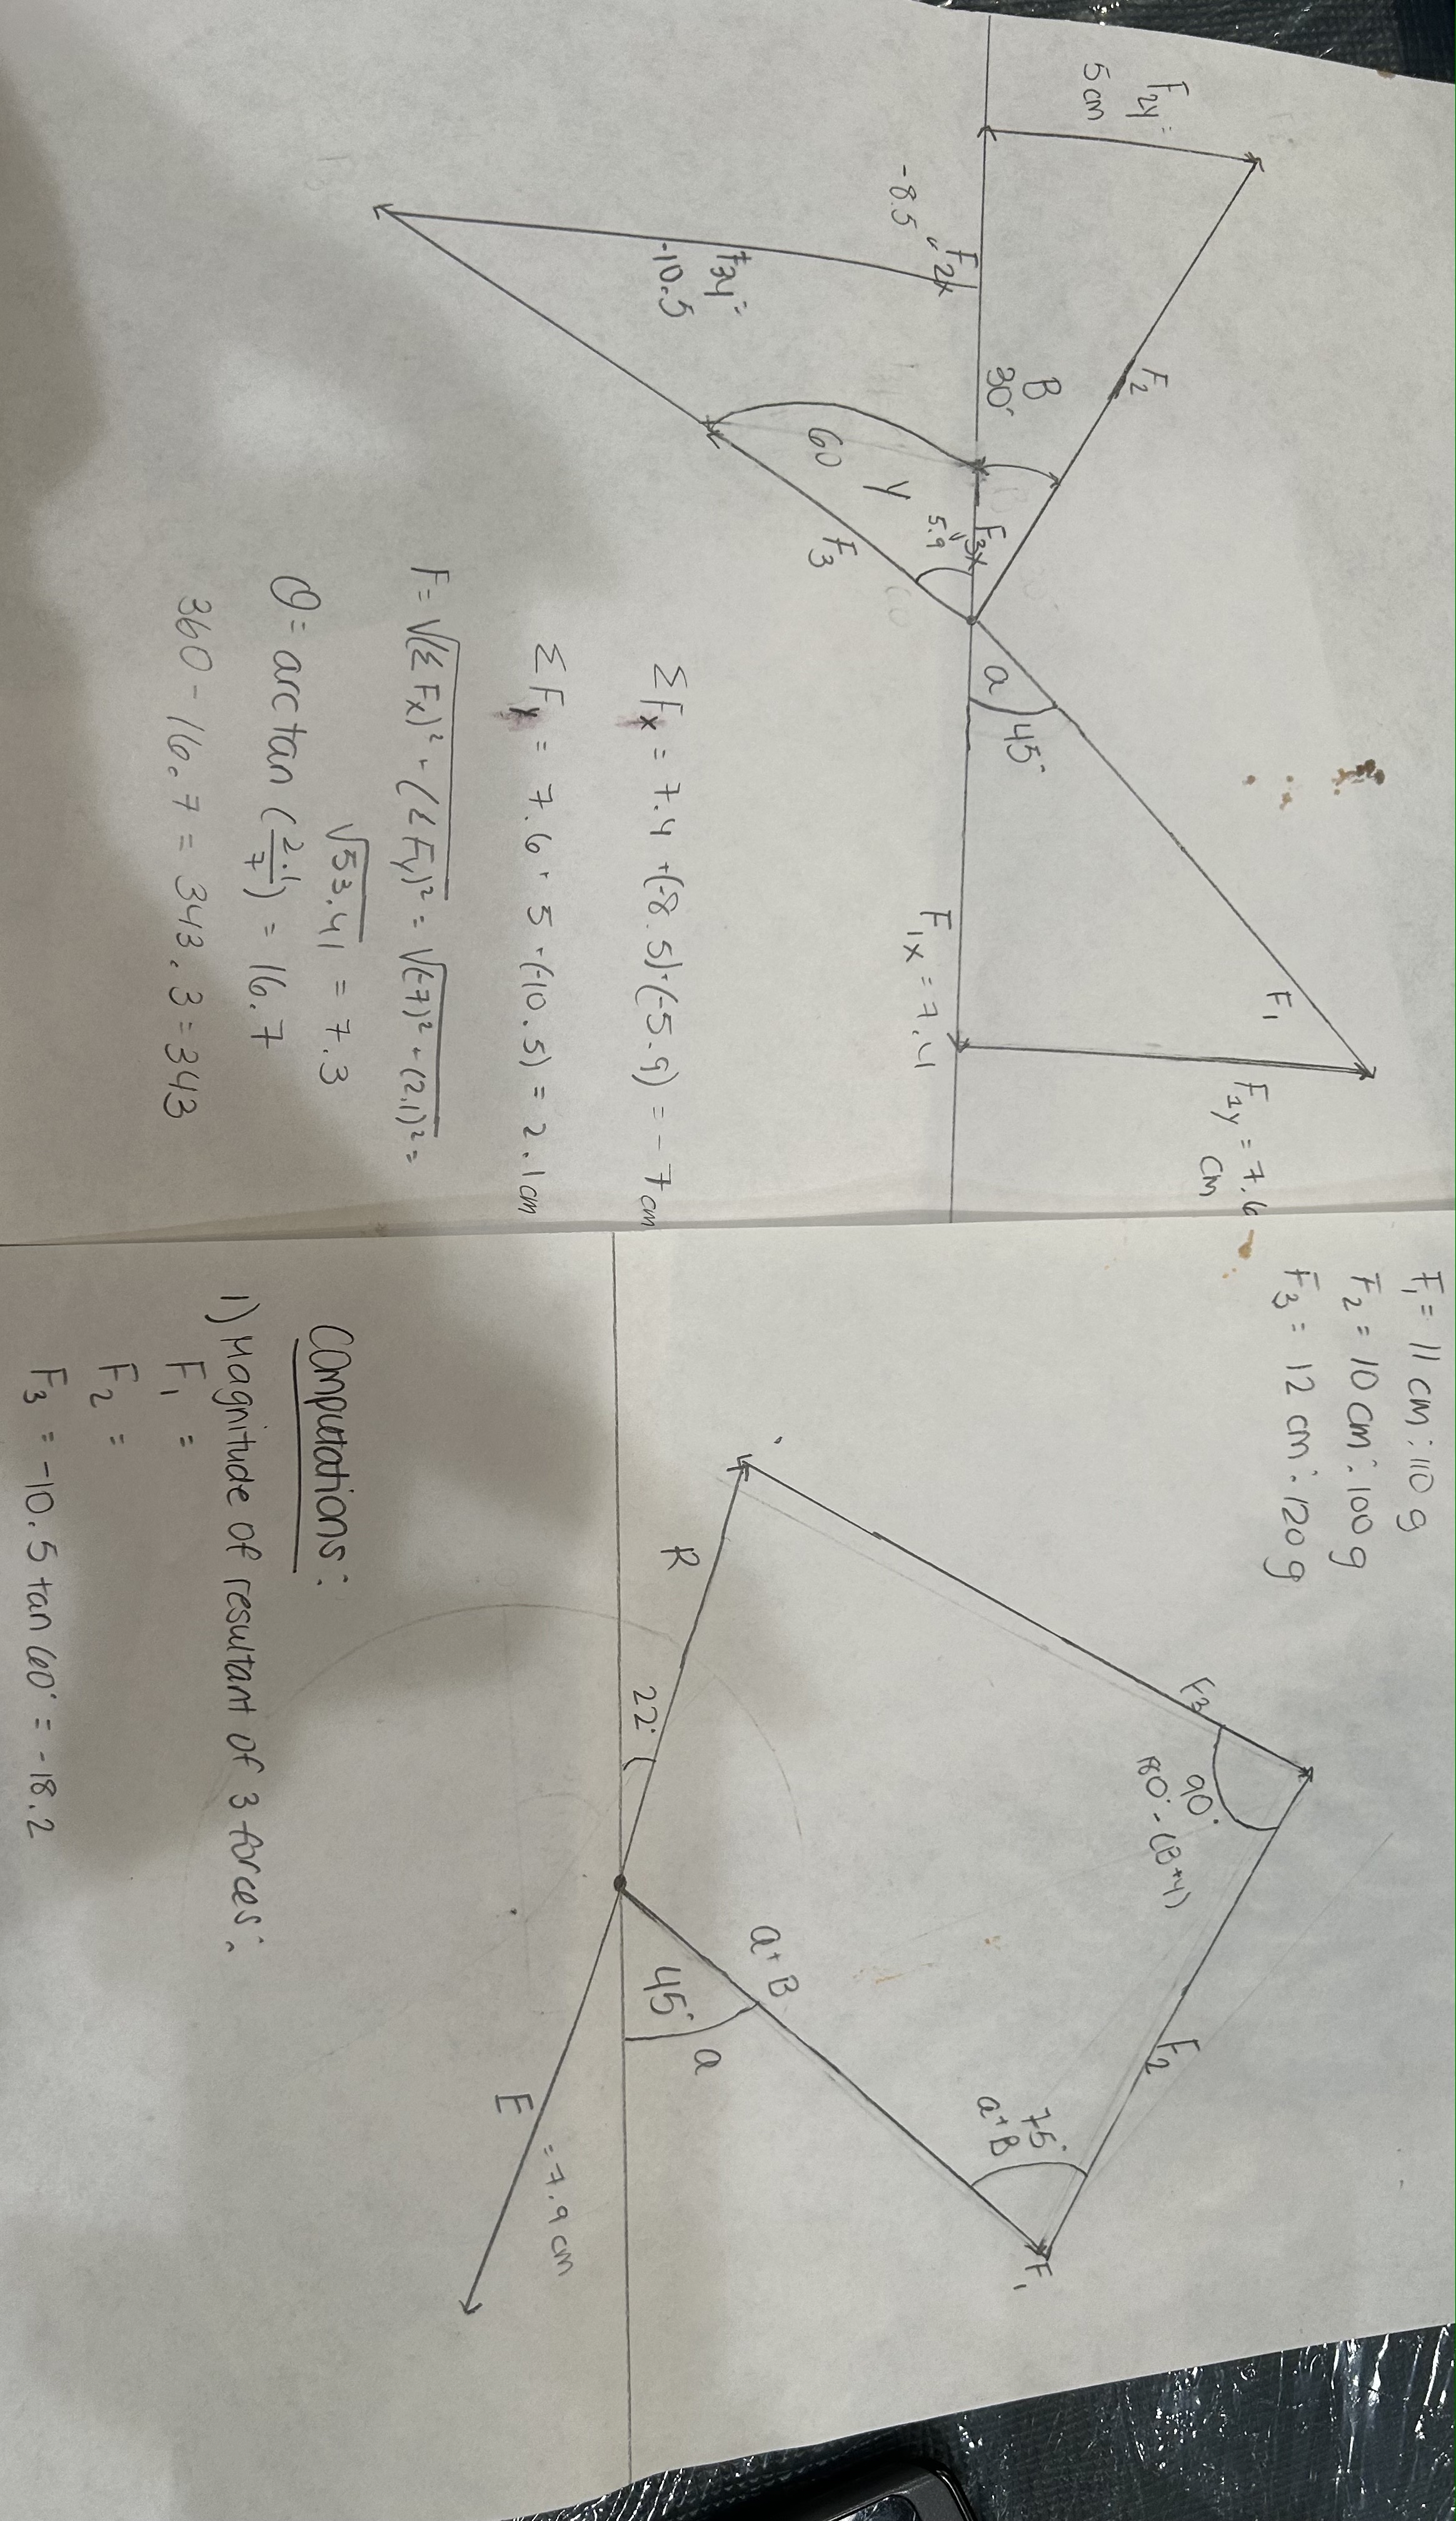 F₂y =
5 cm
F₂
B
30°
F₂x =
-8.5
F₃x
5.9
F₃y =
-10.5
60
γ
F₃
a
45°
F₁
F₁y = 7.6
cm
F₁x = 7.4
ΣFx = 7.4 + (-8.5) + (-5.9) = -7 cm
ΣFy = 7.6 + 5 + (-10.5) = 2.1 cm
F = √(ΣFx)² + (ΣFy)² = √(-7)² + (2.1)² =
√53.41 = 7.3
θ = arctan (2.1/7) = 16.7
360 - 16.7 = 343.3 = 343
F₁ = 11 cm : 110 g
F₂ = 10 cm : 100 g
F₃ = 12 cm : 120 g
F₃
90°
180° - (B+γ)
F₂
75°
a+B
F₁
R
22°
a+B
45°
a
E
= 7.9 cm
Computations:
1) Magnitude of resultant of 3 forces:
F₁ =
F₂ =
F₃ = -10.5 tan 60° = -18.2